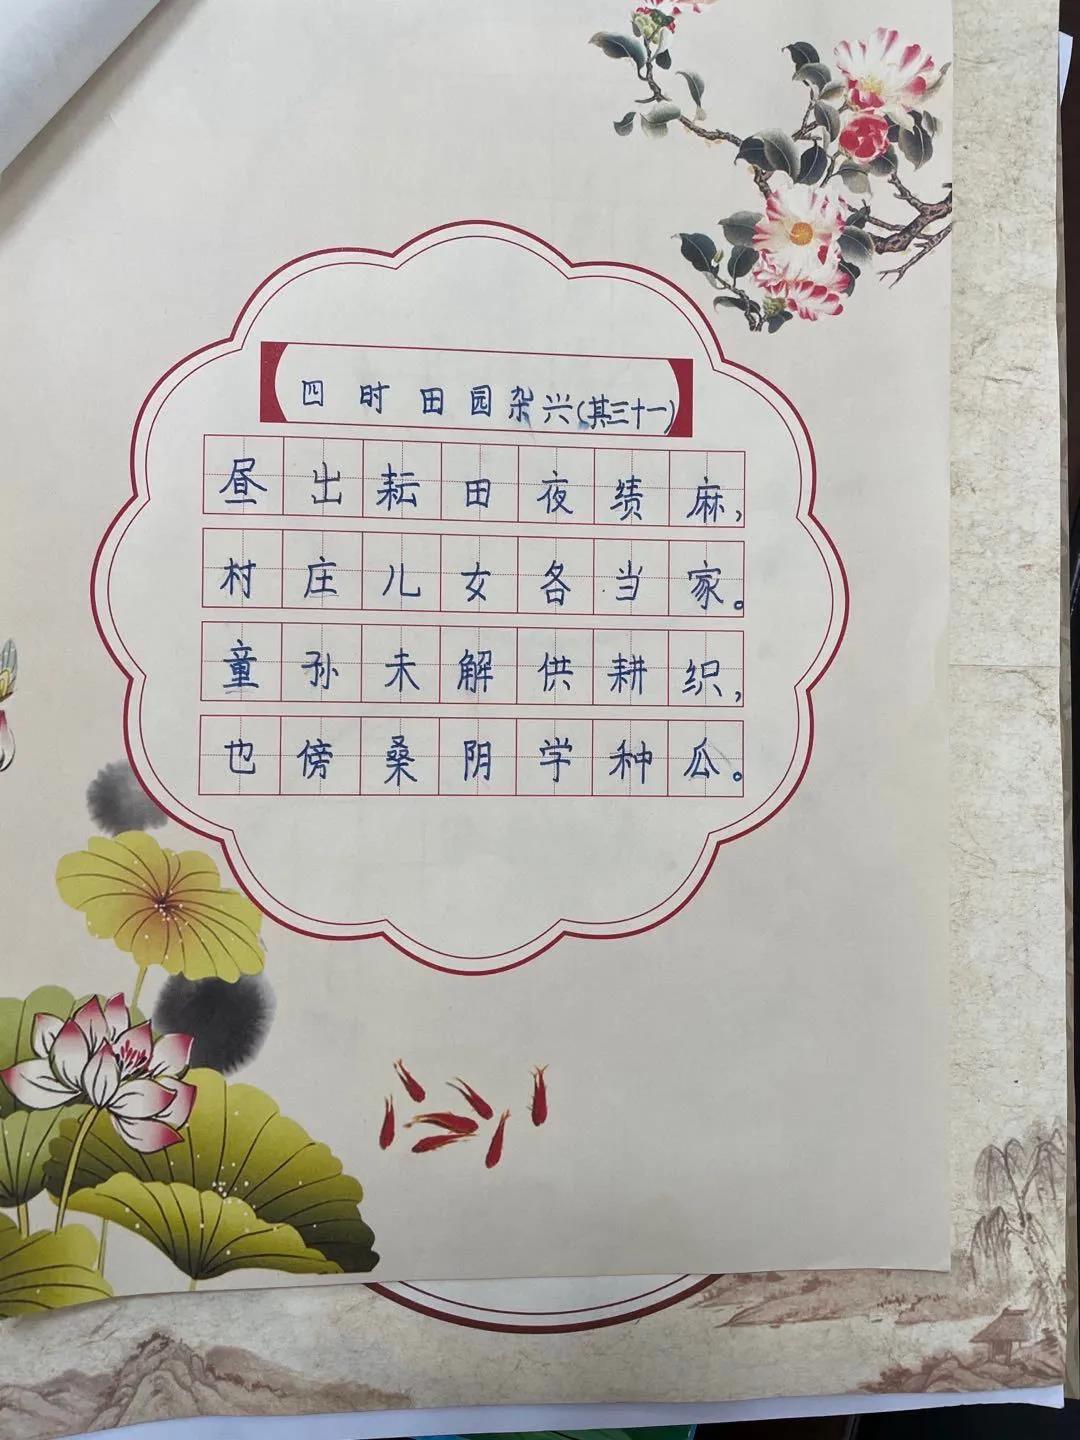 四时田园杂兴(其三十一)
昼出耘田夜绩麻,
村庄儿女各当家。
童孙未解供耕织,
也傍桑阴学种瓜。